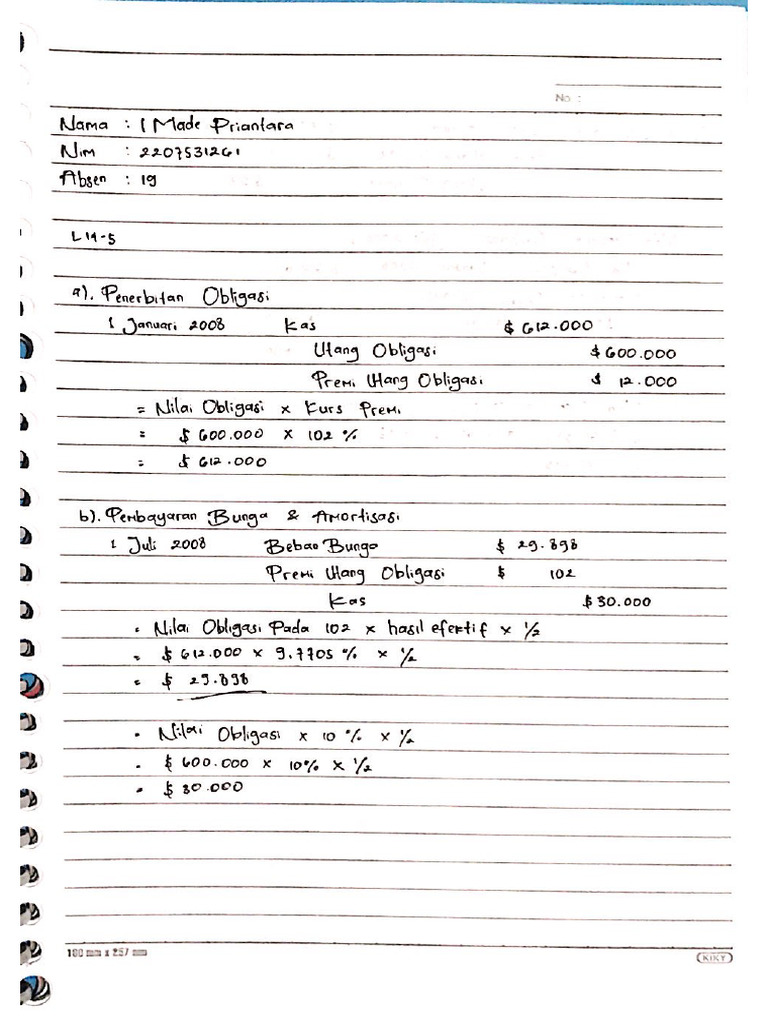 No :
Nama : I Made Priantara
Nim : 2207531261
Absen : 19
L 14-5
a). Penerbitan Obligasi
1 Januari 2008 Kas $ 612.000
Utang Obligasi $ 600.000
Premi Utang Obligasi $ 12.000
= Nilai Obligasi x Kurs Premi
= $ 600.000 x 102 %
= $ 612.000
b). Pembayaran Bunga & Amortisasi
1 Juli 2008 Beban Bunga $ 29.898
Premi Utang Obligasi $ 102
Kas $ 30.000
= Nilai Obligasi Pada 102 x hasil efektif x 1/2
= $ 612.000 x 9.7705 % x 1/2
= $ 29.898
= Nilai Obligasi x 10 % x 1/2
= $ 600.000 x 10% x 1/2
= $ 30.000
180 mm x 257 mm KIKY